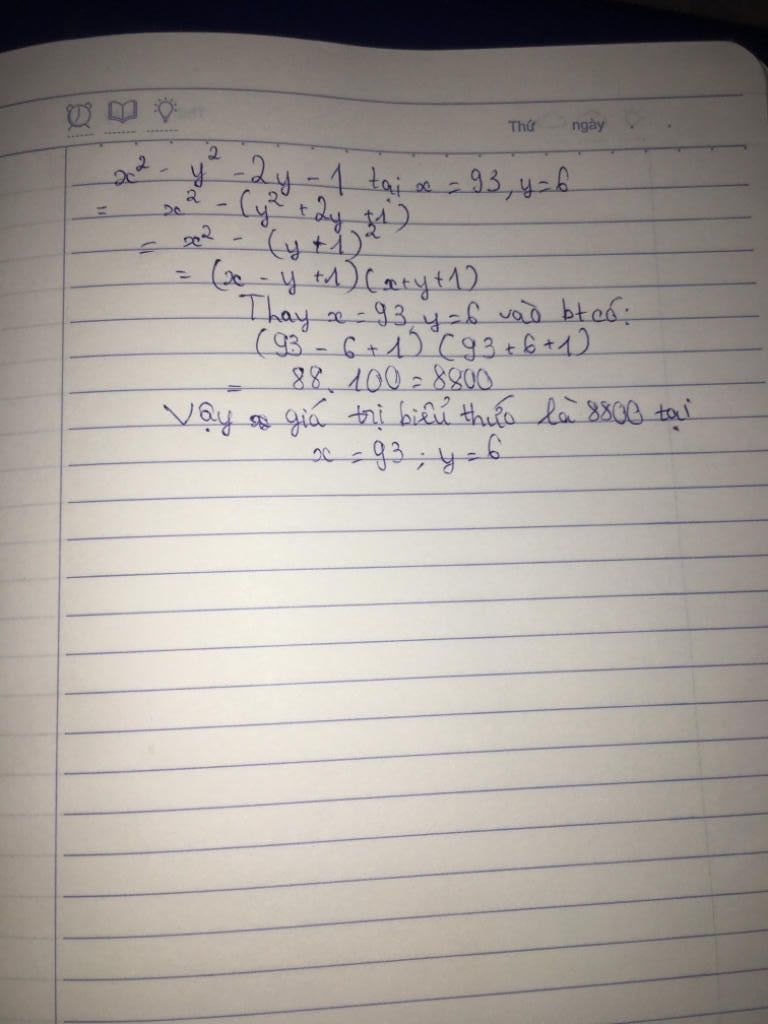 Thứ ngày
x² - y² - 2y - 1 tại x = 93, y = 6
= x² - (y² + 2y + 1)
= x² - (y + 1)²
= (x - y + 1)(x + y + 1)
Thay x = 93, y = 6 vào bt có:
(93 - 6 + 1) (93 + 6 + 1)
= 88. 100 = 8800
Vậy giá trị biểu thức là 8800 tại
x = 93 ; y = 6